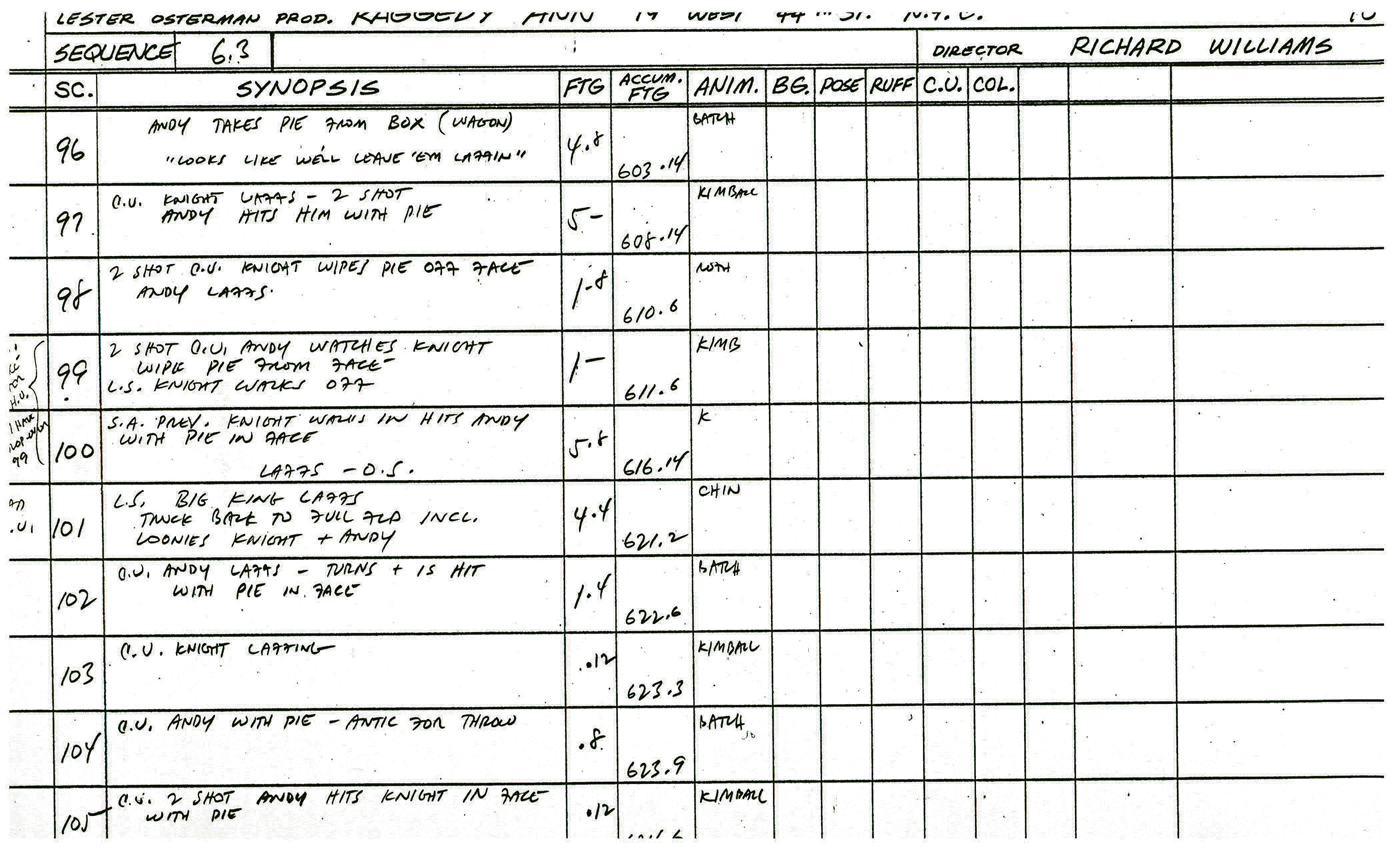 LESTER OSTERMAN PROD. RAGGEDY ANN 19 WEST 44TH ST. N.Y.C. 10
SEQUENCE 6.3 DIRECTOR RICHARD WILLIAMS
SC. SYNOPSIS FTG ACCUM. FTG ANIM. BG. POSE RUFF C.U. COL.
ANDY TAKES PIE FROM BOX (WAGON) BATCH
96 4.8
"LOOKS LIKE WE'LL LEAVE 'EM LAFFIN" 603.14
C.U. KNIGHT LAFFS - 2 SHOT KIMBALL
ANDY HITS HIM WITH PIE
97 5- 608.14
2 SHOT C.U. KNIGHT WIPES PIE OFF FACE ROTH
ANDY LAFFS.
98 1-8 610.6
2 SHOT C.U. ANDY WATCHES KNIGHT KIMB
WIPE PIE FROM FACE
99 1- 611.6
L.S. KNIGHT WALKS OFF
S.A. PREV. KNIGHT WALKS IN HITS ANDY K
WITH PIE IN FACE
100 5.8 616.14
LAFFS - O.S.
L.S. BIG KING LAFFS CHIN
TRUCK BACK TO FULL FLD INCL.
101 4.4 621.2
LOONIES KNIGHT + ANDY
C.U. ANDY LAFFS - TURNS + IS HIT BATCH
WITH PIE IN FACE
102 1.4 622.6
C.U. KNIGHT LAFFING KIMBALL
103 .12 623.3
C.U. ANDY WITH PIE - ANTIC FOR THROW BATCH
104 .8 623.9
C.U. 2 SHOT ANDY HITS KNIGHT IN FACE KIMBALL
WITH PIE
105 .12